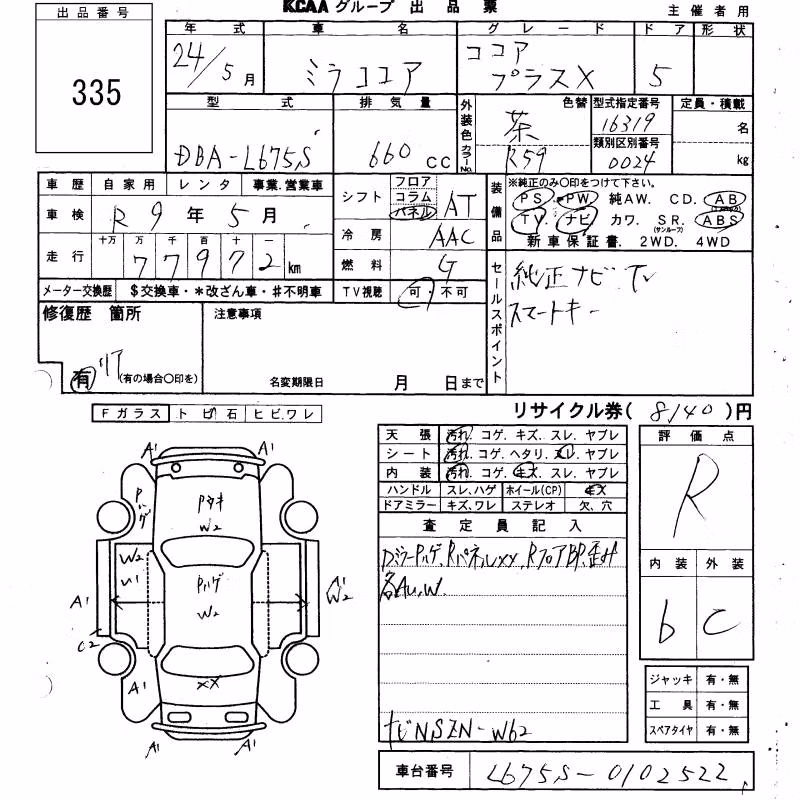 KCAA グループ 出品票
主催者用
出品番号
335
年式 車名 グレード ドア 形状
24/5月 ミラココア ココア プラスX 5
型式 排気量 外装色 カラーNo. 色替 型式指定番号 定員・積載
DBA-L675S 660cc 茶 R59 16319 名
類別区別番号
0024 kg
車歴 自家用 レンタ 事業.営業車
車検 R9年5月
走行 十万 万 千 百 十 一
77972km
メーター交換歴 $交換車・*改ざん車・♯不明車
シフト フロア コラム パネル AT
冷房 AAC
燃料 G
TV視聴 可・不可
装備品 ※純正のみ〇印をつけて下さい。
PS. PW. 純AW. CD. AB
TV. ナビ カワ. SR.(サンルーフ) ABS
新車保証書. 2WD. 4WD
セールスポイント
純正ナビTV
スマートキー
修復歴 箇所
有 リア (有の場合〇印を)
注意事項
名変期限日 月 日まで
リサイクル券( 8140 )円
Fガラス トビ石 ヒビ.ワレ
天張 汚れ. コゲ. キズ. スレ. ヤブレ
シート 汚れ. コゲ. ヘタリ. スレ. ヤブレ
内装 汚れ. コゲ. キズ. スレ. ヤブレ
ハンドル スレ, ハゲ ホイール(CP) キズ
ドアミラー キズ, ワレ ステレオ 欠, 穴
評価点
R
内装 外装
b C
査定員記入
Rパネルxx, RフロアBP,歪み
各AU,W.
ナビNSZN-W62
ジャッキ 有・無
工具 有・無
スペアタイヤ 有・無
車台番号 L675S-0102522
A1 A1
Pハゲ
Pタキ
W2
W2
U1
Pハゲ
W2
A1
A1
W2
C2
A1
XX
A1
A1 A1